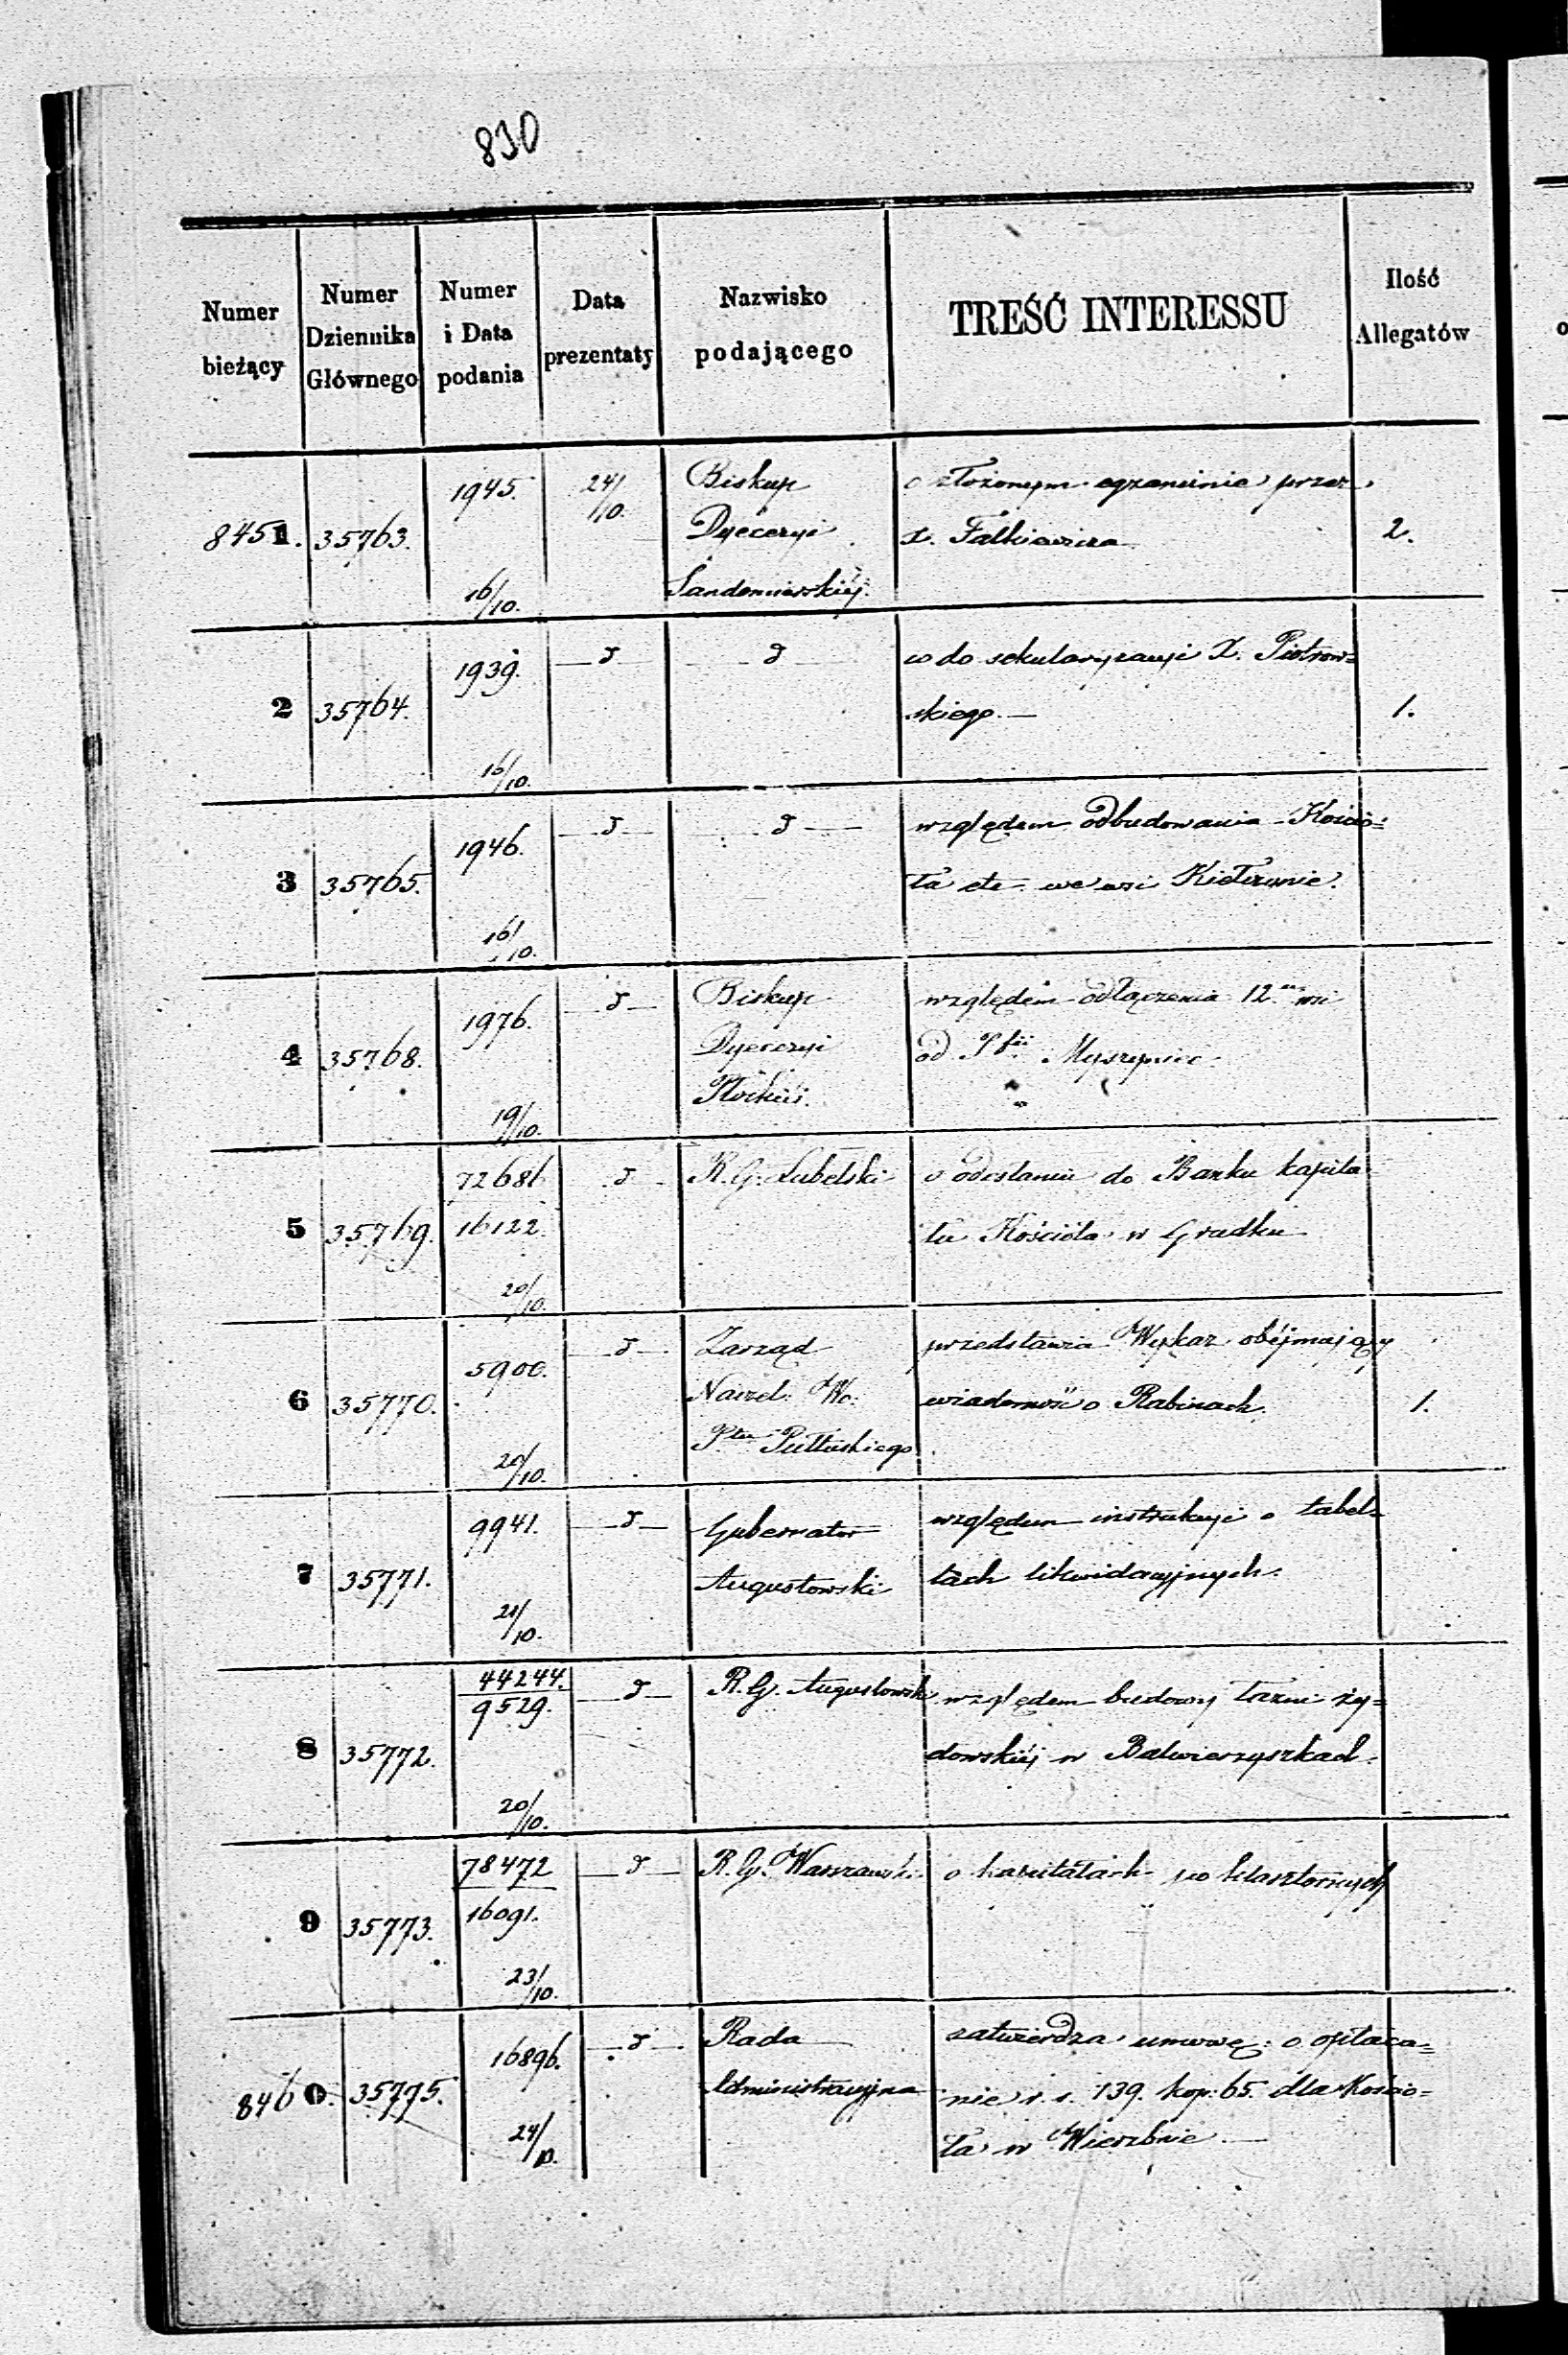 830
Numer bieżący
Numer Dziennika Głównego
Numer i Data podania
Data prezentaty
Nazwisko podającego
TREŚĆ INTERESSU
Ilość Allegatów
8451. 35763. 1945. 16/10. 24/10.
Biskup
Dyecezyi
Sandomierskiéj.
o złożonym egzaminie przez
X. Falkiewicza
2.
2 35764. 1939. 16/10. d d
wo do sekularyzacyi X. Piotrow=
skiego.—
1.
3 35765. 1946. 16/10. d d
względem odbudowania Kościo=
ła etc we wsi Kiełczynie.
4 35768. 1976. 19/10. d
Biskup
Dyecezyi
Płockiéj.
względem odłączenia 12. wsi
od Pfii Myszyniec
5 35769. 72681 16122. 20/10. d
R. G. Lubelski
o odesłaniu do Banku kapita
łu Kościoła w Gradku
6 35770. 5900. 20/10. d
Zarząd
Naczel: Wo.
Ptu Pułtuskiego
przedstawia Wykaz obéjmujący
wiadomość o Rabinach.
1.
7 35771. 9941. 21/10. d
Gubernator
Augustowski
względem instrukcyi o tabel=
lach likwidacyjnych.
8 35772. 44244. 9529. 20/10. d
R. G. Augustowski
względem budowy łaźni ży=
dowskiéj w Balwierzyszkach.
9 35773. 78472 16091. 23/10. d
R. G. Warszawski
o kapitałach po klasztornych
8460. 35775. 16896. 24/10. d
Rada
Administracyjna
zatwierdza umowę: o opłaca=
nie r. s. 139. kop: 65. dla Kościo=
ła w Wierzbnie